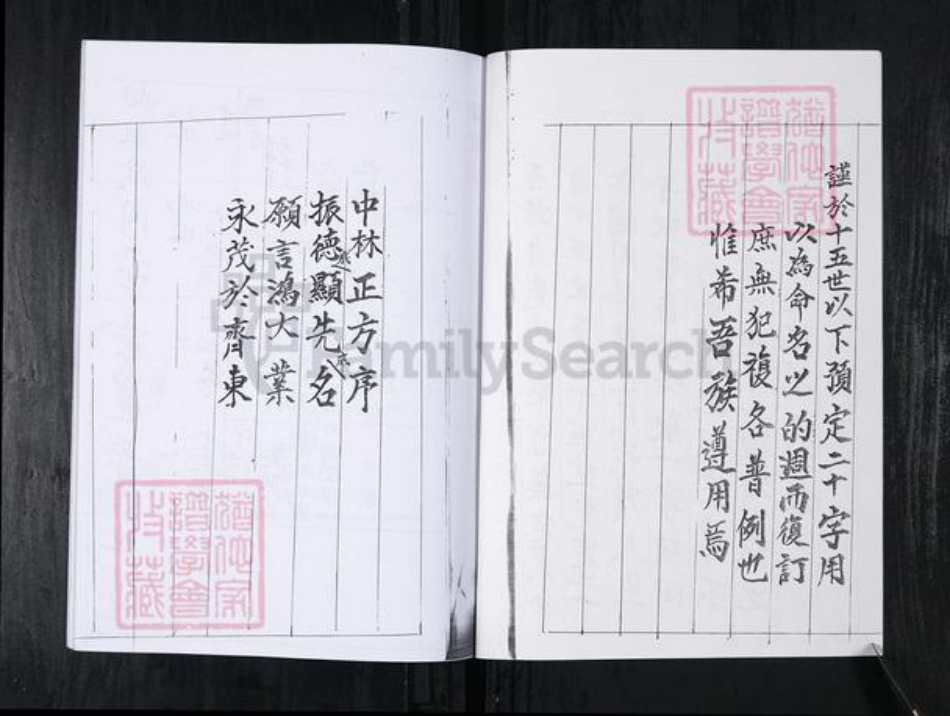 謹於十五世以下預定二十字用
以為命名之的週而復訂
庶無犯複各普例也
惟希吾族遵用焉
中林正方序
振德顯先名
願言鴻大業
永茂於齊東
FamilySearch
譜學會
收藏
譜學會
收藏